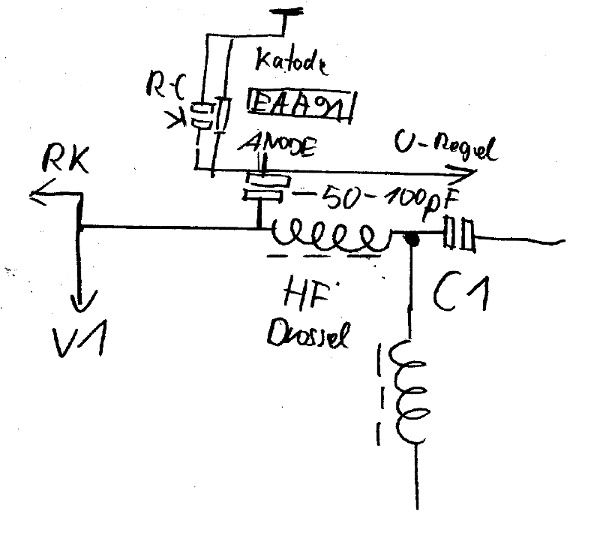 Katode
R-C
EAA91
ANODE
U-Regel
RK
50-100pF
HF
Drossel
C1
V1